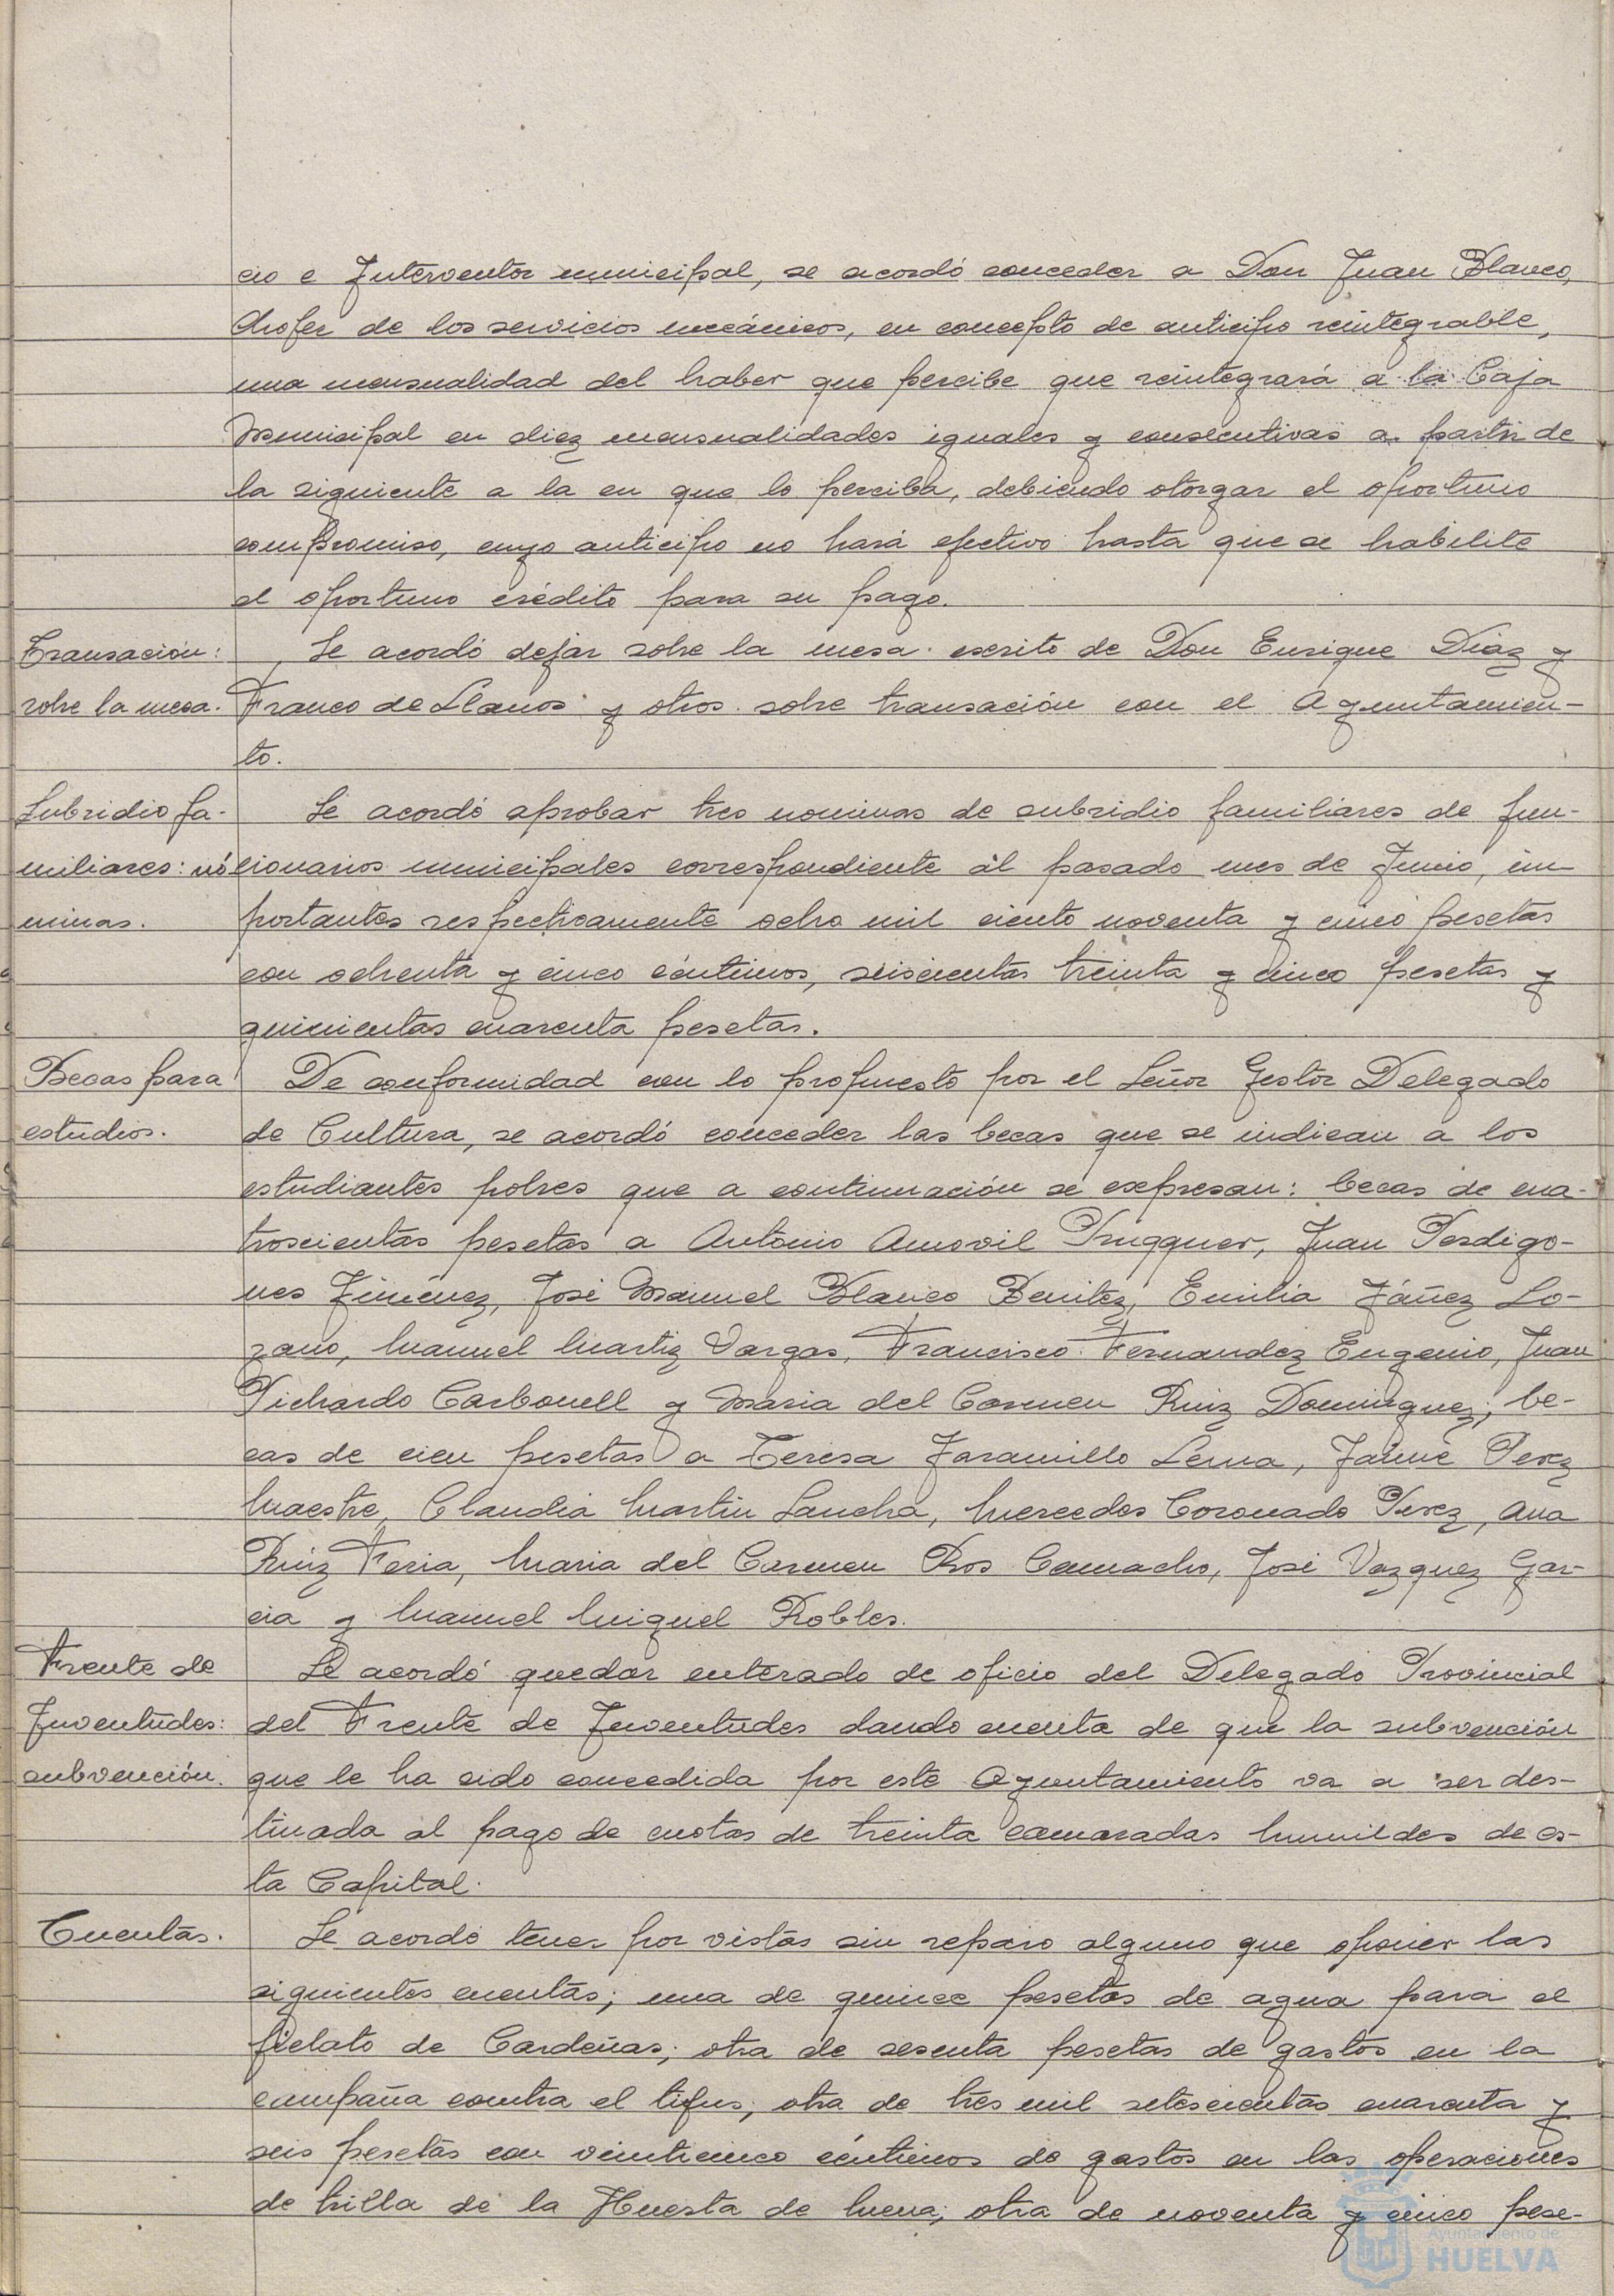 cio e Interventor municipal, se acordó conceder a Don Juan Blanco,
Chofer de los servicios mecánicos, en concepto de anticipo reintegrable,
una mensualidad del haber que percibe que reintegrará a la Caja
Municipal en diez mensualidades iguales y consecutivas a partir de
la siguiente a la en que lo perciba, debiendo otorgar el oportuno
compromiso, cuyo anticipo no hará efectivo hasta que se habilite
el oportuno crédito para su pago.
Transación: Se acordó dejar sobre la mesa escrito de Don Enrique Diaz y
sobre la mesa. Franco de Llanos y otros sobre transación con el Ayuntamien-
to.
Subsidio fa- Se acordó aprobar tres nominas de subsidio familiares de fun-
miliares: nó cionarios municipales correspondiente al pasado mes de Junio, im-
minas. portantes respectivamente ocho mil ciento noventa y cinco pesetas
con ochenta y cinco céntimos, seiscientas treinta y cinco pesetas y
quinientas cuarenta pesetas.
Becas para De conformidad con lo propuesto por el Señor Gestor Delegado
estudios. de Cultura, se acordó conceder las becas que se indican a los
estudiantes pobres que a continuación se expresan: becas de cua-
troscientas pesetas a Antonio Amovil Trugquer, Juan Perdigo-
nes Jiménez, José Manuel Blanco Benitez, Emilia Jáñez Lo-
zano, Manuel Martiz Vargas, Francisco Fernandez Eugenio, Juan
Pichardo Carbonell y Maria del Carmen Ruiz Dominguez; be-
cas de cien pesetas a Teresa Jaramillo Lema, Jaime Perez
Maestre, Claudia Martin Sancha, Mercedes Coronado Perez, Ana
Ruiz Feria, Maria del Carmen Ros Camacho, José Vazquez Gar-
cia y Manuel Miguel Robles.
Frente de Se acordó quedar enterado de oficio del Delegado Provincial
Juventudes: del Frente de Juventudes dando cuenta de que la subvención
subvención. que le ha sido concedida por este Ayuntamiento va a ser des-
tinada al pago de cuotas de treinta camaradas humildes de es-
ta Capital.
Cuentas. Se acordó tener por vistas sin reparo alguno que oponer las
siguientes cuentas; una de quince pesetas de agua para el
fielato de Cardeñas; otra de sesenta pesetas de gastos en la
campaña contra el tifus; otra de tres mil setescientas cuarenta y
seis pesetas con veinticinco céntimos de gastos en las operaciones
de trilla de la Huerta de Mena; otra de noventa y cinco pese-
Ayuntamiento de
HUELVA